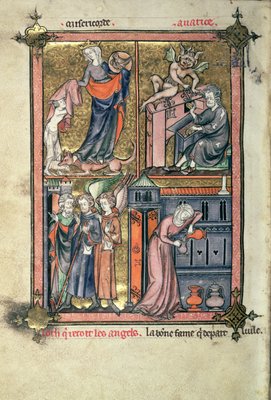 misericorde auarice
loth q̃ recoit les angels. la bone fame q̃ depart luile.